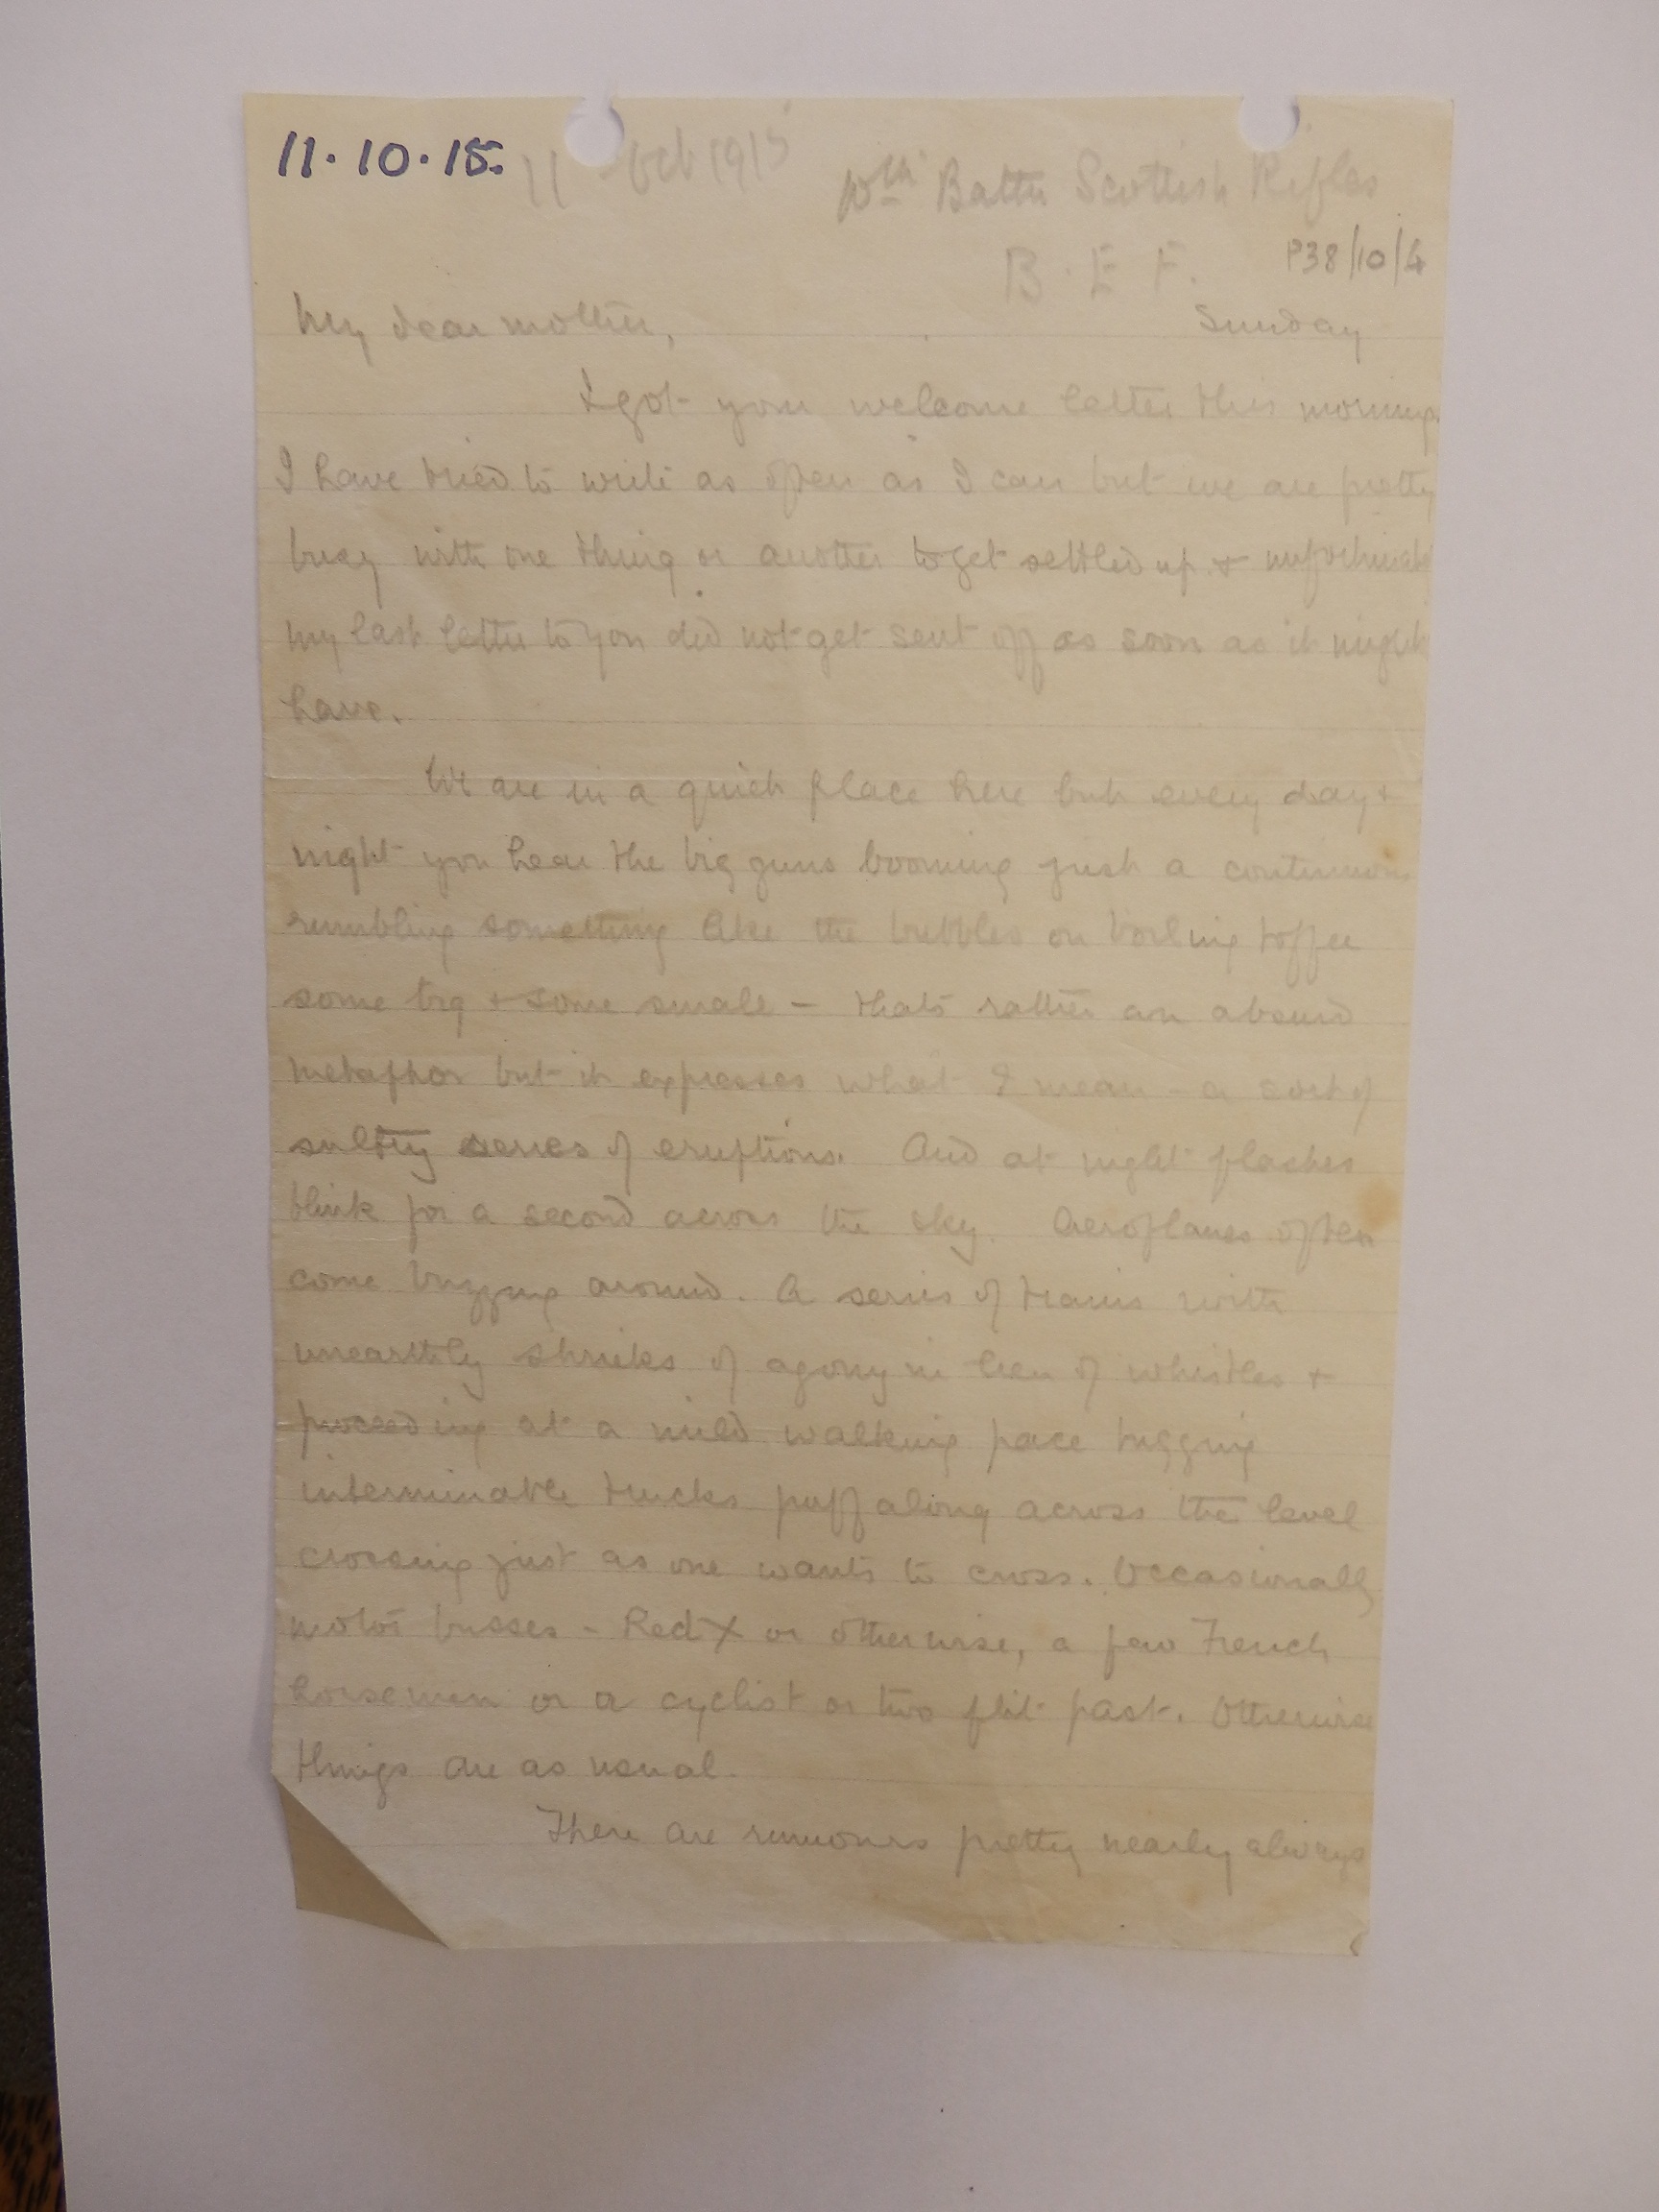 11.10.15.
11 Oct 1915
10th Battn Scottish Rifles
B. E. F.
P38/10/4
Sunday
My dear mother,
I got your welcome letter this morning.
I have tried to write as often as I can but we are pretty
busy with one thing or another to get settled up & unfortunately
my last letter to you did not get sent off as soon as it might
have.
We are in a quiet place here but every day &
night you hear the big guns booming just a continuous
rumbling something like the bubbles on boiling toffee
some big & some small - thats rather an absurd
metaphor but it expresses what I mean - a sort of
sultry series of eruptions. And at night flashes
blink for a second across the sky. Aeroplanes often
come buzzing around. A series of trains with
unearthly shrieks of agony in lieu of whistles &
proceeding at a mild walking pace tugging
interminable trucks puff along across the level
crossing just as one wants to cross. Occasionally
motor busses - Red X or otherwise, a few French
horsemen or a cyclist or two flit past. Otherwise
things are as usual.
There are rumours pretty nearly always